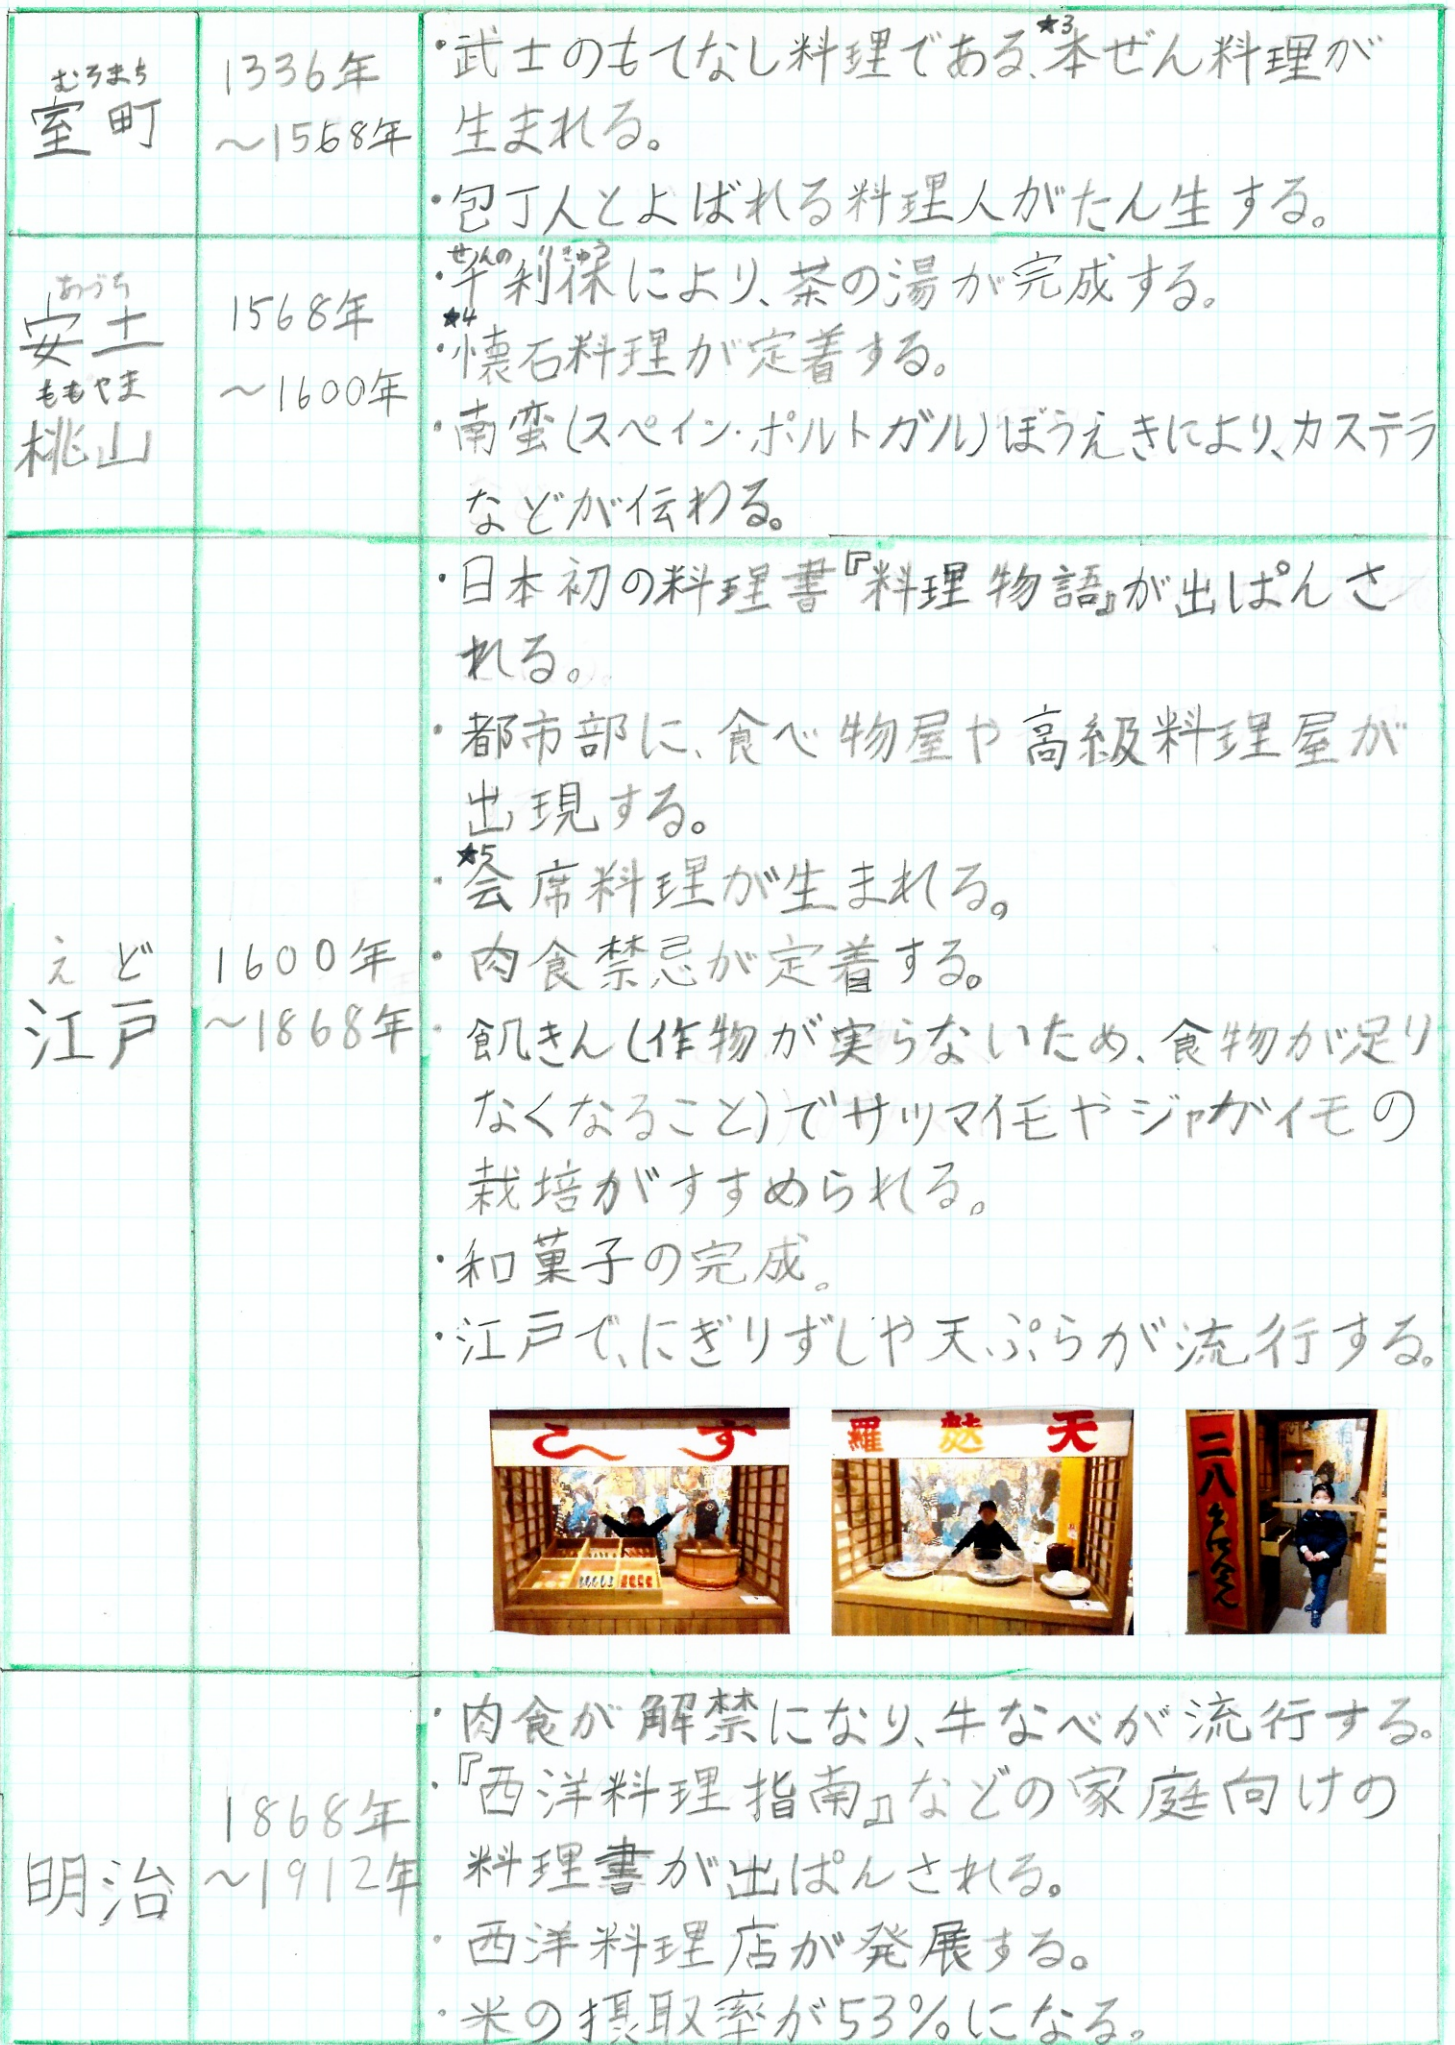 むろまち
室町
1336年
〜1568年
・武士のもてなし料理である、★3本ぜん料理が
生まれる。
・包丁人とよばれる料理人がたん生する。
あづち
安土
ももやま
桃山
1568年
〜1600年
せんの りきゅう
・千利休により、茶の湯が完成する。
★4
・懐石料理が定着する。
・南蛮(スペイン・ポルトガル)ぼうえきにより、カステラ
などが伝わる。
えど
江戸
1600年
〜1868年
・日本初の料理書『料理物語』が出ぱんさ
れる。
・都市部に、食べ物屋や高級料理屋が
出現する。
★5
・会席料理が生まれる。
・肉食禁忌が定着する。
・飢きん(作物が実らないため、食物が足り
なくなること)でサツマイモやジャガイモの
栽培がすすめられる。
・和菓子の完成。
・江戸で、にぎりずしや天ぷらが流行する。
すし
天麩羅
二八
明治
1868年
〜1912年
・肉食が解禁になり、牛なべが流行する。
・『西洋料理指南』などの家庭向けの
料理書が出ぱんされる。
・西洋料理店が発展する。
・米の摂取率が53%になる。